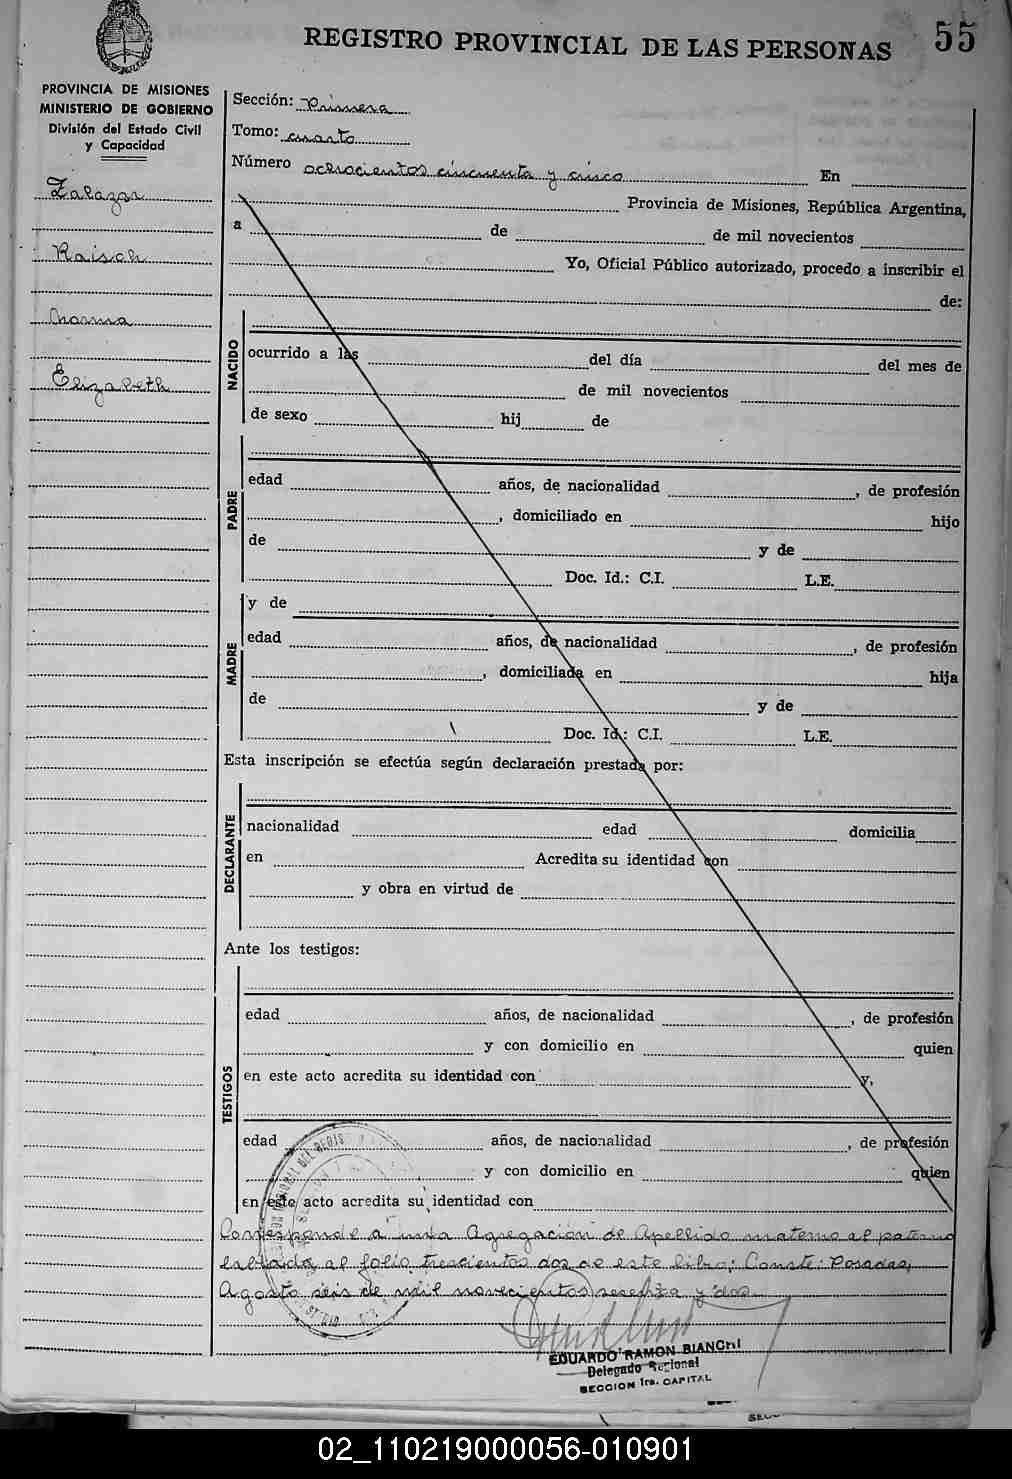 55
REGISTRO PROVINCIAL DE LAS PERSONAS
PROVINCIA DE MISIONES
MINISTERIO DE GOBIERNO
División del Estado Civil
y Capacidad
Zalazar
Raisch
Norma
Elizabeth
Sección: Primera
Tomo: cuarto
Número ochocientos cincuenta y cinco En
Provincia de Misiones, República Argentina,
a de de mil novecientos
Yo, Oficial Público autorizado, procedo a inscribir el
de:
NACIDO
ocurrido a las del día del mes de
de mil novecientos
de sexo hij de
PADRE
edad años, de nacionalidad , de profesión
, domiciliado en hijo
de y de
Doc. Id.: C.I. L.E.
MADRE
y de
edad años, de nacionalidad , de profesión
, domiciliada en hija
de y de
Doc. Id.: C.I. L.E.
Esta inscripción se efectúa según declaración prestada por:
DECLARANTE
nacionalidad edad domicilia
en Acredita su identidad con
y obra en virtud de
Ante los testigos:
TESTIGOS
edad años, de nacionalidad , de profesión
y con domicilio en quien
en este acto acredita su identidad con y,
edad años, de nacionalidad , de profesión
y con domicilio en quien
en este acto acredita su identidad con
Corresponde a una Agregación de Apellido materno al paterno
labrada al folio trescientos dos de este libro; Conste: Posadas,
Agosto seis de mil novecientos sesenta y dos
EDUARDO RAMON BIANCHI
Delegado Regional
SECCION 1ra. CAPITAL
02_110219000056-010901